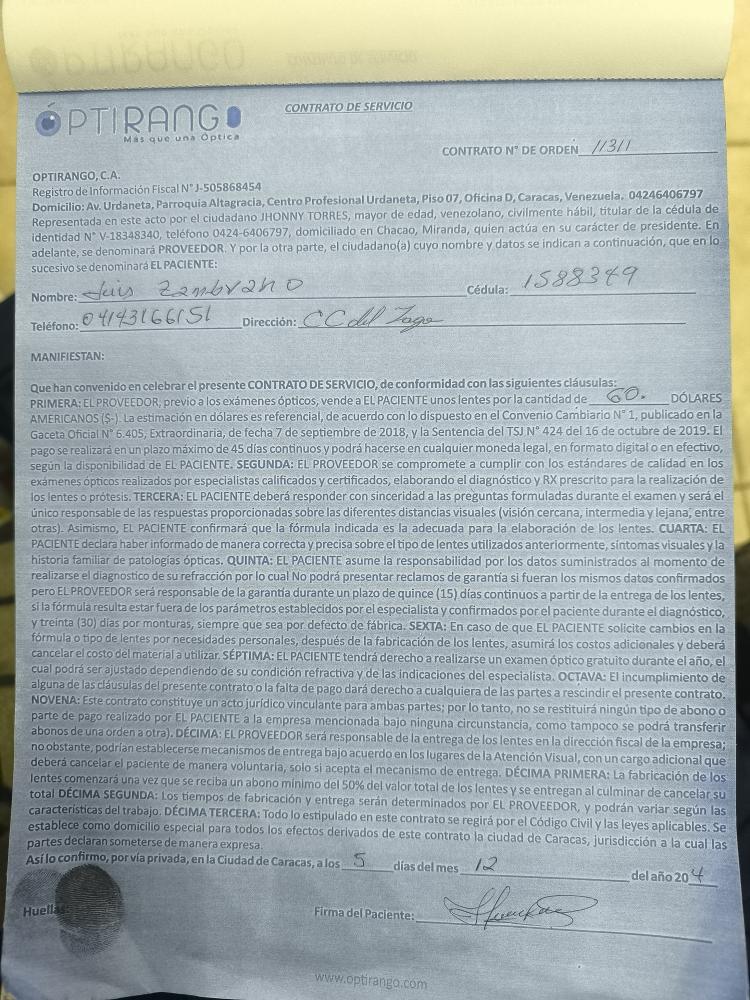 ÓPTIRANGO
Más que una Óptica
CONTRATO DE SERVICIO
CONTRATO N° DE ORDEN 11311
OPTIRANGO, C.A.
Registro de Información Fiscal N° J-505868454
Domicilio: Av. Urdaneta, Parroquia Altagracia, Centro Profesional Urdaneta, Piso 07, Oficina D, Caracas, Venezuela. 04246406797
Representada en este acto por el ciudadano JHONNY TORRES, mayor de edad, venezolano, civilmente hábil, titular de la cédula de
identidad N° V-18348340, teléfono 0424-6406797, domiciliado en Chacao, Miranda, quien actúa en su carácter de presidente. En
adelante, se denominará PROVEEDOR. Y por la otra parte, el ciudadano(a) cuyo nombre y datos se indican a continuación, que en lo
sucesivo se denominará EL PACIENTE:
Nombre: Luis Zambrano Cédula: 1588349
Teléfono: 04143166151 Dirección: CC del Lago
MANIFIESTAN:
Que han convenido en celebrar el presente CONTRATO DE SERVICIO, de conformidad con las siguientes cláusulas:
PRIMERA: EL PROVEEDOR, previo a los exámenes ópticos, vende a EL PACIENTE unos lentes por la cantidad de 60. DÓLARES
AMERICANOS ($-). La estimación en dólares es referencial, de acuerdo con lo dispuesto en el Convenio Cambiario N° 1, publicado en la
Gaceta Oficial N° 6.405, Extraordinaria, de fecha 7 de septiembre de 2018, y la Sentencia del TSJ N° 424 del 16 de octubre de 2019. El
pago se realizará en un plazo máximo de 45 días continuos y podrá hacerse en cualquier moneda legal, en formato digital o en efectivo,
según la disponibilidad de EL PACIENTE. SEGUNDA: EL PROVEEDOR se compromete a cumplir con los estándares de calidad en los
exámenes ópticos realizados por especialistas calificados y certificados, elaborando el diagnóstico y RX prescrito para la realización de
los lentes o prótesis. TERCERA: EL PACIENTE deberá responder con sinceridad a las preguntas formuladas durante el examen y será el
único responsable de las respuestas proporcionadas sobre las diferentes distancias visuales (visión cercana, intermedia y lejana, entre
otras). Asimismo, EL PACIENTE confirmará que la fórmula indicada es la adecuada para la elaboración de los lentes. CUARTA: EL
PACIENTE declara haber informado de manera correcta y precisa sobre el tipo de lentes utilizados anteriormente, síntomas visuales y la
historia familiar de patologías ópticas. QUINTA: EL PACIENTE asume la responsabilidad por los datos suministrados al momento de
realizarse el diagnostico de su refracción por lo cual No podrá presentar reclamos de garantía si fueran los mismos datos confirmados
pero EL PROVEEDOR será responsable de la garantía durante un plazo de quince (15) días continuos a partir de la entrega de los lentes,
si la fórmula resulta estar fuera de los parámetros establecidos por el especialista y confirmados por el paciente durante el diagnóstico,
y treinta (30) días por monturas, siempre que sea por defecto de fábrica. SEXTA: En caso de que EL PACIENTE solicite cambios en la
fórmula o tipo de lentes por necesidades personales, después de la fabricación de los lentes, asumirá los costos adicionales y deberá
cancelar el costo del material a utilizar. SÉPTIMA: EL PACIENTE tendrá derecho a realizarse un examen óptico gratuito durante el año, el
cual podrá ser ajustado dependiendo de su condición refractiva y de las indicaciones del especialista. OCTAVA: El incumplimiento de
alguna de las cláusulas del presente contrato o la falta de pago dará derecho a cualquiera de las partes a rescindir el presente contrato.
NOVENA: Este contrato constituye un acto jurídico vinculante para ambas partes; por lo tanto, no se restituirá ningún tipo de abono o
parte de pago realizado por EL PACIENTE a la empresa mencionada bajo ninguna circunstancia, como tampoco se podrá transferir
abonos de una orden a otra). DÉCIMA: EL PROVEEDOR será responsable de la entrega de los lentes en la dirección fiscal de la empresa;
no obstante, podrían establecerse mecanismos de entrega bajo acuerdo en los lugares de la Atención Visual, con un cargo adicional que
deberá cancelar el paciente de manera voluntaria, solo si acepta el mecanismo de entrega. DÉCIMA PRIMERA: La fabricación de los
lentes comenzará una vez que se reciba un abono mínimo del 50% del valor total de los lentes y se entregan al culminar de cancelar su
total DÉCIMA SEGUNDA: Los tiempos de fabricación y entrega serán determinados por EL PROVEEDOR, y podrán variar según las
características del trabajo. DÉCIMA TERCERA: Todo lo estipulado en este contrato se regirá por el Código Civil y las leyes aplicables. Se
establece como domicilio especial para todos los efectos derivados de este contrato la ciudad de Caracas, jurisdicción a la cual las
partes declaran someterse de manera expresa.
Así lo confirmo, por vía privada, en la Ciudad de Caracas, a los 5 días del mes 12 del año 20 4
Huellas
Firma del Paciente:
www.optirango.com